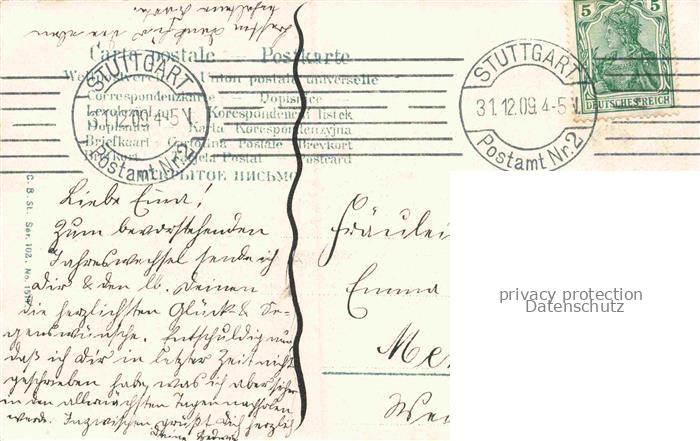 Carte postale — Postkarte
Weltpostverein — Union postale universelle
Correspondenzkarte — Dopisnice
Levelezö-Lap — Korespondencni listek
Dopisnica — Karta Korespondencyjna
Briefkaart — Cartolina Postale — Brevkort
Brefkort — Tarjeta Postal — Postcard
ОТКРЫТОЕ ПИСЬМО
STUTTGART
31.12.09.4-5 V.
Postamt Nr.2
STUTTGART
31.12.09.4-5 V.
Postamt Nr.2
5 5
DEUTSCHES REICH
C. B. St. Ser. 102, No.
Liebe Emma!
Zum bevorstehenden
Jahreswechsel sende ich
Dir & den lb. Deinen
die herzlichsten Glück- & Se-
genswünsche. Entschuldig nur
daß ich Dir in letzter Zeit nicht
geschrieben habe, was ich aber sicher
in den allernächsten Tagen nachholen
werde. Inzwischen grüßt Dich herzlich
Deine Hedwig
Fräulei
Emma
Me
privacy protection
Datenschutz